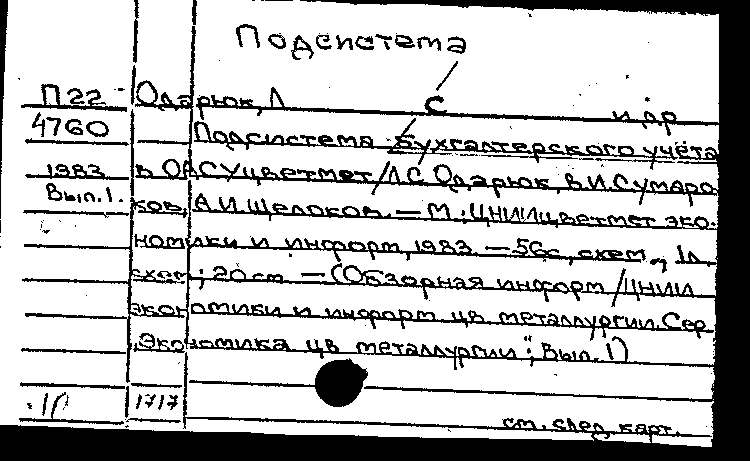 Подсистема
П22 Одарюк, Л С и др
4760 Подсистема бухгалтерского учёта
1983 в ОАСУцветмет / Л.С. Одарюк, В.И. Сумаро
Вып.1. ков, А.И. Щелоков. — М.: ЦНИИцветмет эко-
номики и информ, 1983. — 56с., схем., 1л.
схем; 20 см — (Обзорная информ / ЦНИИ
экономики и информ цв металлургии. Сер
"Экономика цв металлургии"; Вып. 1)
1717
см. след. карт.